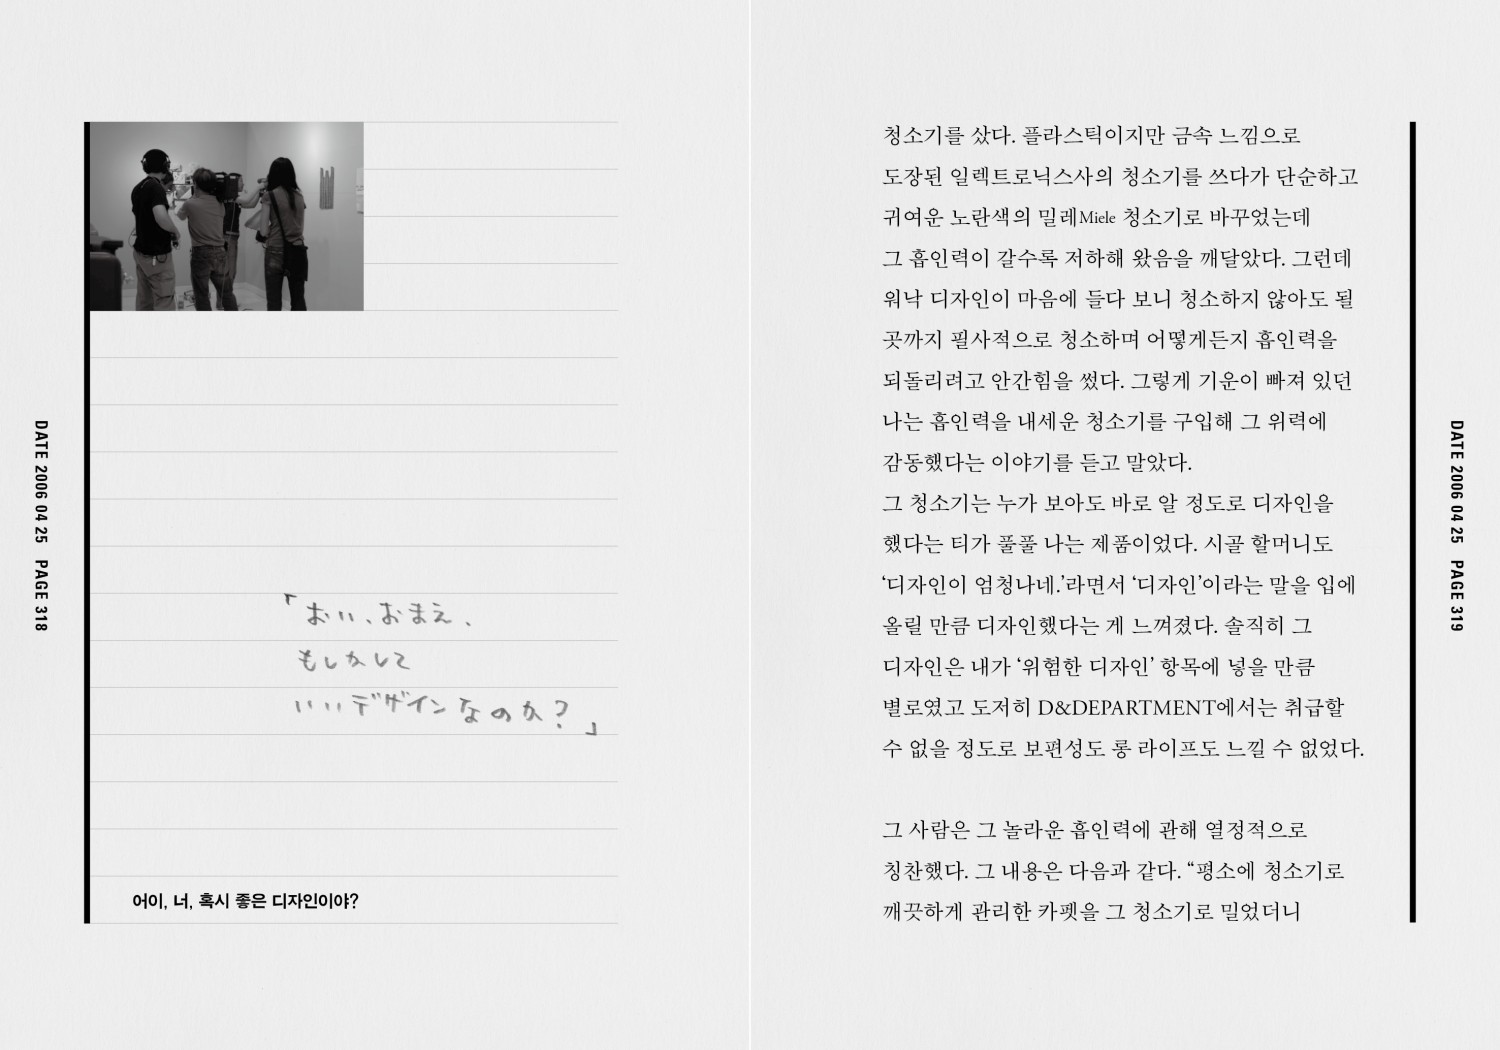 DATE 2006 04 25 PAGE 318
「おい、おまえ、
もしかして
いいデザインなのか?」
어이, 너, 혹시 좋은 디자인이야?
청소기를 샀다. 플라스틱이지만 금속 느낌으로
도장된 일렉트로닉스사의 청소기를 쓰다가 단순하고
귀여운 노란색의 밀레Miele 청소기로 바꾸었는데
그 흡인력이 갈수록 저하해 왔음을 깨달았다. 그런데
워낙 디자인이 마음에 들다 보니 청소하지 않아도 될
곳까지 필사적으로 청소하며 어떻게든지 흡인력을
되돌리려고 안간힘을 썼다. 그렇게 기운이 빠져 있던
나는 흡인력을 내세운 청소기를 구입해 그 위력에
감동했다는 이야기를 듣고 말았다.
그 청소기는 누가 보아도 바로 알 정도로 디자인을
했다는 티가 풀풀 나는 제품이었다. 시골 할머니도
‘디자인이 엄청나네.’라면서 ‘디자인’이라는 말을 입에
올릴 만큼 디자인했다는 게 느껴졌다. 솔직히 그
디자인은 내가 ‘위험한 디자인’ 항목에 넣을 만큼
별로였고 도저히 D&DEPARTMENT에서는 취급할
수 없을 정도로 보편성도 롱 라이프도 느낄 수 없었다.
그 사람은 그 놀라운 흡인력에 관해 열정적으로
칭찬했다. 그 내용은 다음과 같다. “평소에 청소기로
깨끗하게 관리한 카펫을 그 청소기로 밀었더니
DATE 2006 04 25 PAGE 319